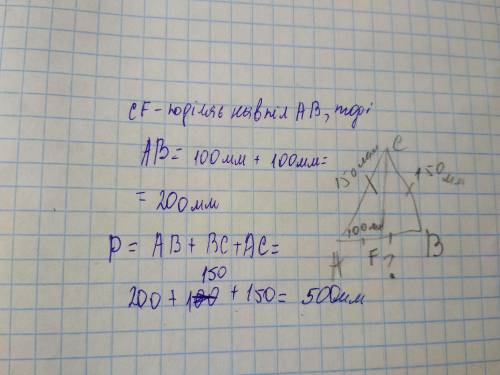 CF - поділяє навпіл AB, тоді
AB = 100мм + 100мм =
= 200мм
P = AB + BC + AC =
200 + 150 + 150 = 500мм
C
150мм
150мм
100мм
A
F
?
B